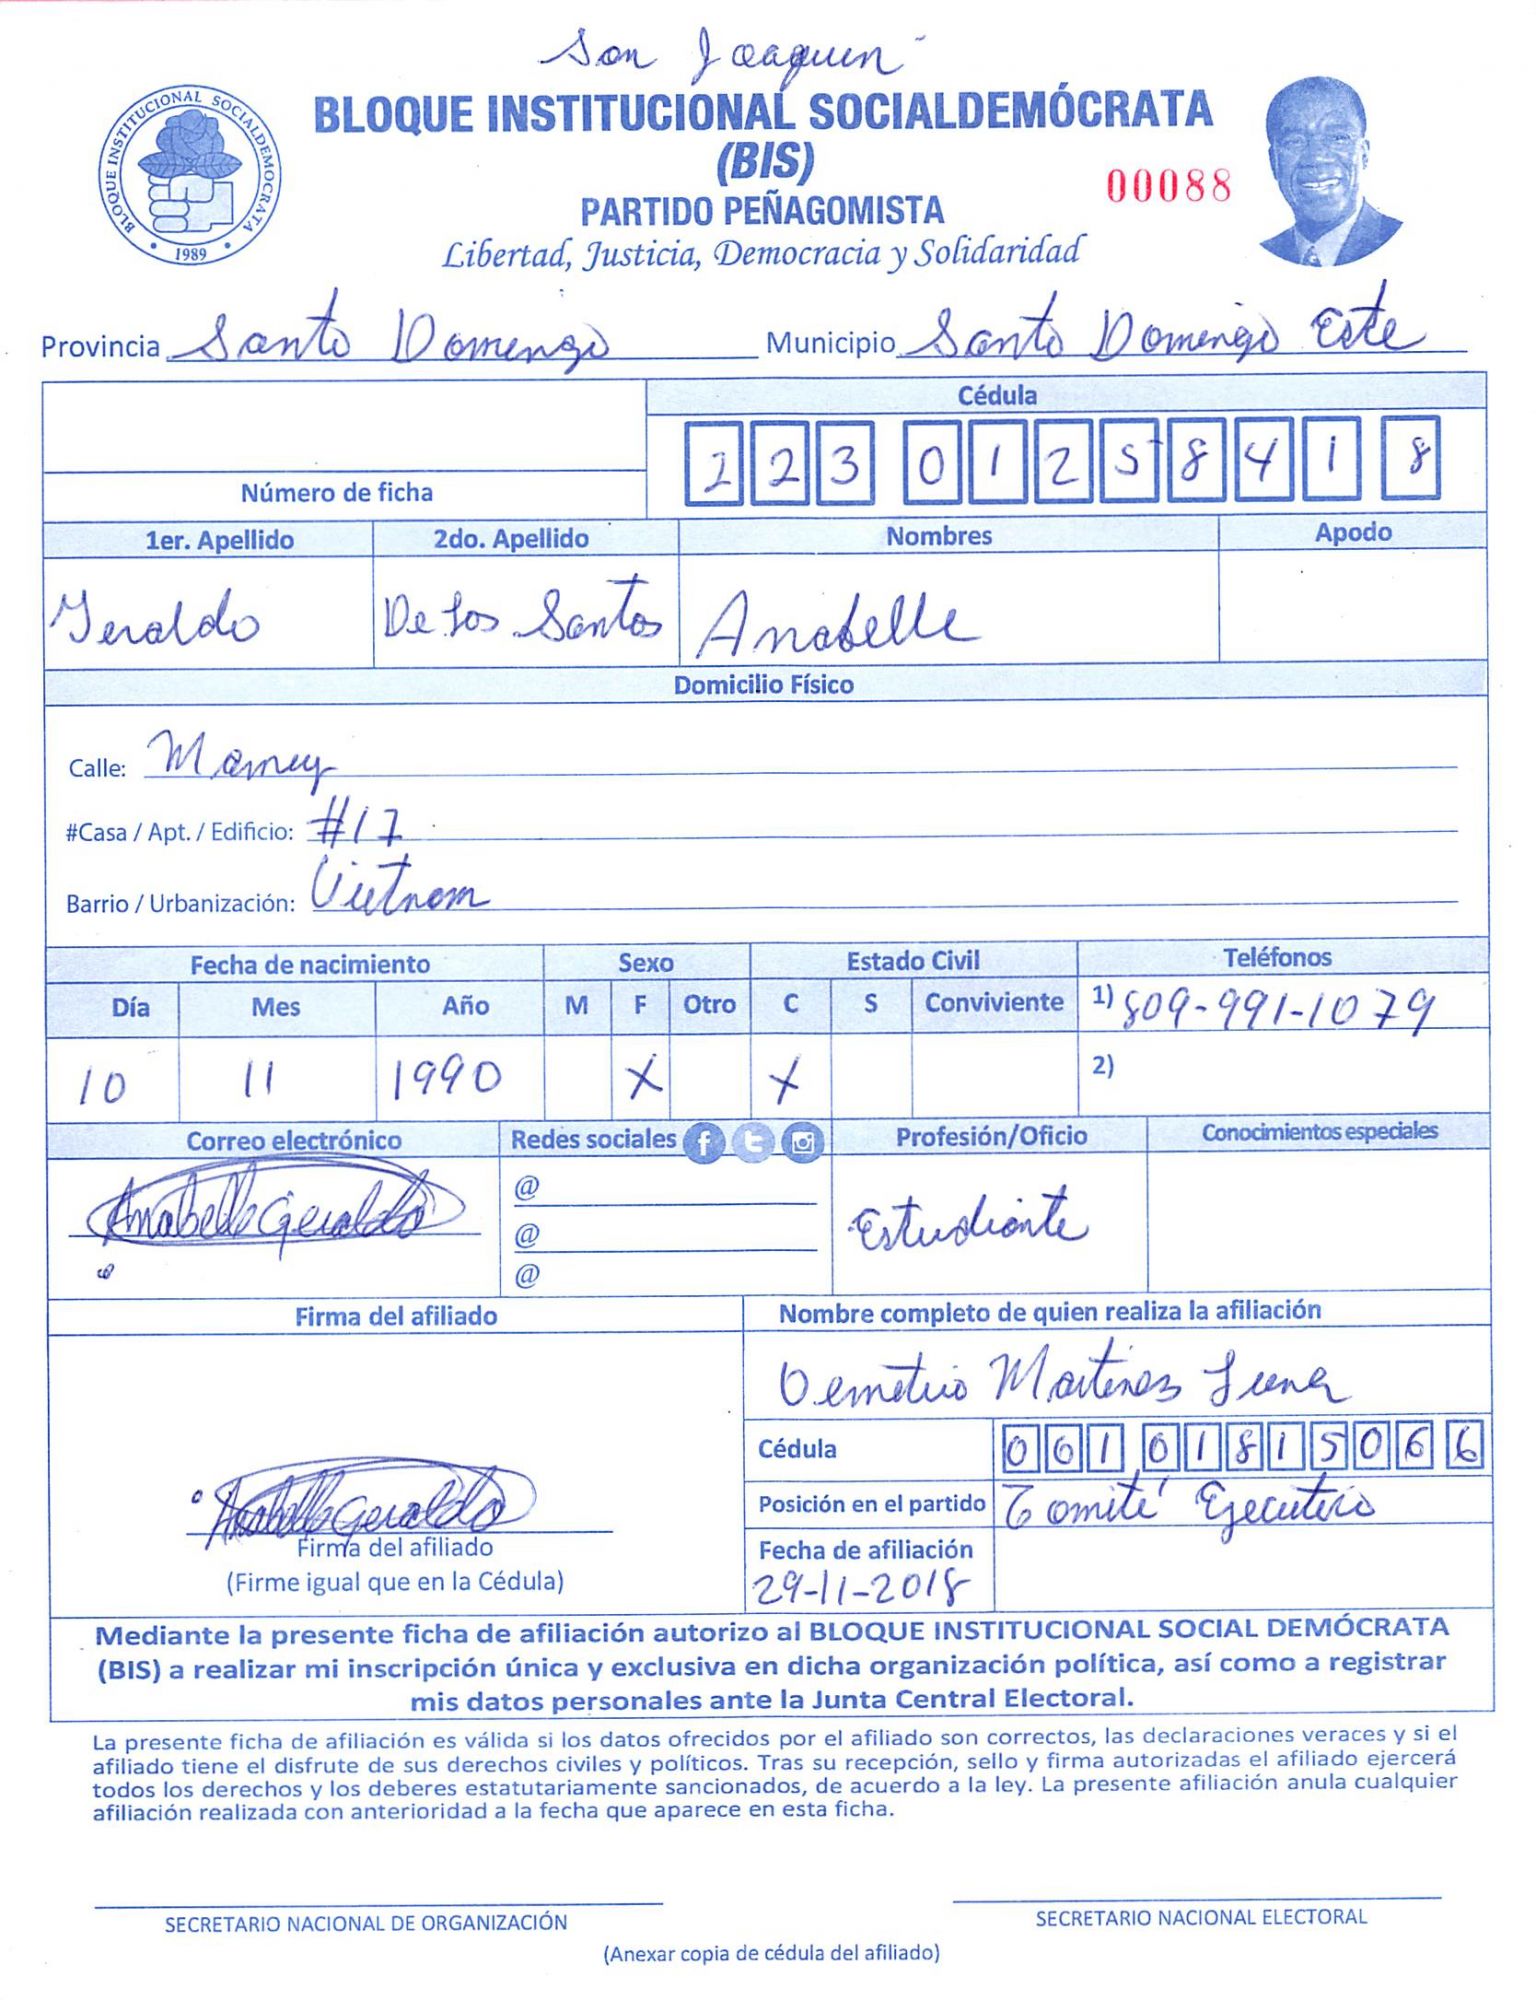 San Joaquin
BLOQUE INSTITUCIONAL SOCIALDEMÓCRATA
(BIS)
BLOQUE INSTITUCIONAL SOCIALDEMOCRATA
1989
00088
PARTIDO PEÑAGOMISTA
Libertad, Justicia, Democracia y Solidaridad
Provincia Santo Domingo Municipio Santo Domingo Este
Cédula
2 2 3 0 1 2 5 8 4 1 8
Número de ficha
1er. Apellido 2do. Apellido Nombres Apodo
Geraldo De Los Santos Anabelle
Domicilio Físico
Calle: Mamey
#Casa / Apt. / Edificio: #17
Barrio / Urbanización: Vietnam
Fecha de nacimiento Sexo Estado Civil Teléfonos
Día Mes Año M F Otro C S Conviviente 1) 809-991-1079
10 11 1990 X X 2)
Correo electrónico Redes sociales Profesión/Oficio Conocimientos especiales
Anabelle Geraldo @ Estudiante
@
@
Firma del afiliado Nombre completo de quien realiza la afiliación
Demetrio Martinez Luna
Cédula 0 0 1 0 1 8 1 5 0 6 6
Anabelle Geraldo Posición en el partido Comité Ejecutivo
Firma del afiliado Fecha de afiliación
(Firme igual que en la Cédula) 29-11-2018
Mediante la presente ficha de afiliación autorizo al BLOQUE INSTITUCIONAL SOCIAL DEMÓCRATA
(BIS) a realizar mi inscripción única y exclusiva en dicha organización política, así como a registrar
mis datos personales ante la Junta Central Electoral.
La presente ficha de afiliación es válida si los datos ofrecidos por el afiliado son correctos, las declaraciones veraces y si el
afiliado tiene el disfrute de sus derechos civiles y políticos. Tras su recepción, sello y firma autorizadas el afiliado ejercerá
todos los derechos y los deberes estatutariamente sancionados, de acuerdo a la ley. La presente afiliación anula cualquier
afiliación realizada con anterioridad a la fecha que aparece en esta ficha.
SECRETARIO NACIONAL DE ORGANIZACIÓN SECRETARIO NACIONAL ELECTORAL
(Anexar copia de cédula del afiliado)